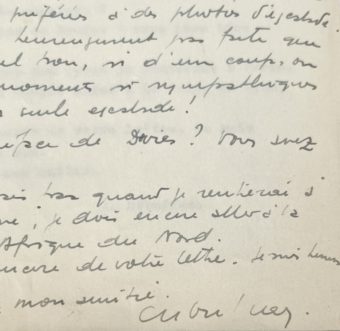 préférés à des photos d'escalade.
heureusement pas faite que
si d'un coup, on
moments si sympathiques
seule escalade!
de Davies? Vous avez
pas quand je rentrerai à
je dois encore aller à la
Afrique du Nord.
encore de votre lettre. Je suis heureux
mon amitié.